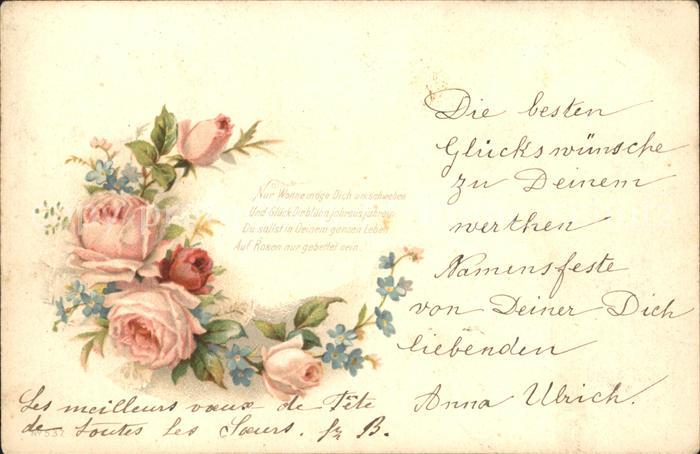 Nur Wonne möge Dich umschweben
Und Glück Dir blüh'n jahraus, jahrein
Du sollst in Deinem ganzen Leben
Auf Rosen nur gebettet sein.
Die besten
Glückswünsche
zu Deinem
werthen
Namensfeste
von Deiner Dich
liebenden
Anna Ulrich.
Les meilleurs vœux de Fête
de toutes les Sœurs. B.